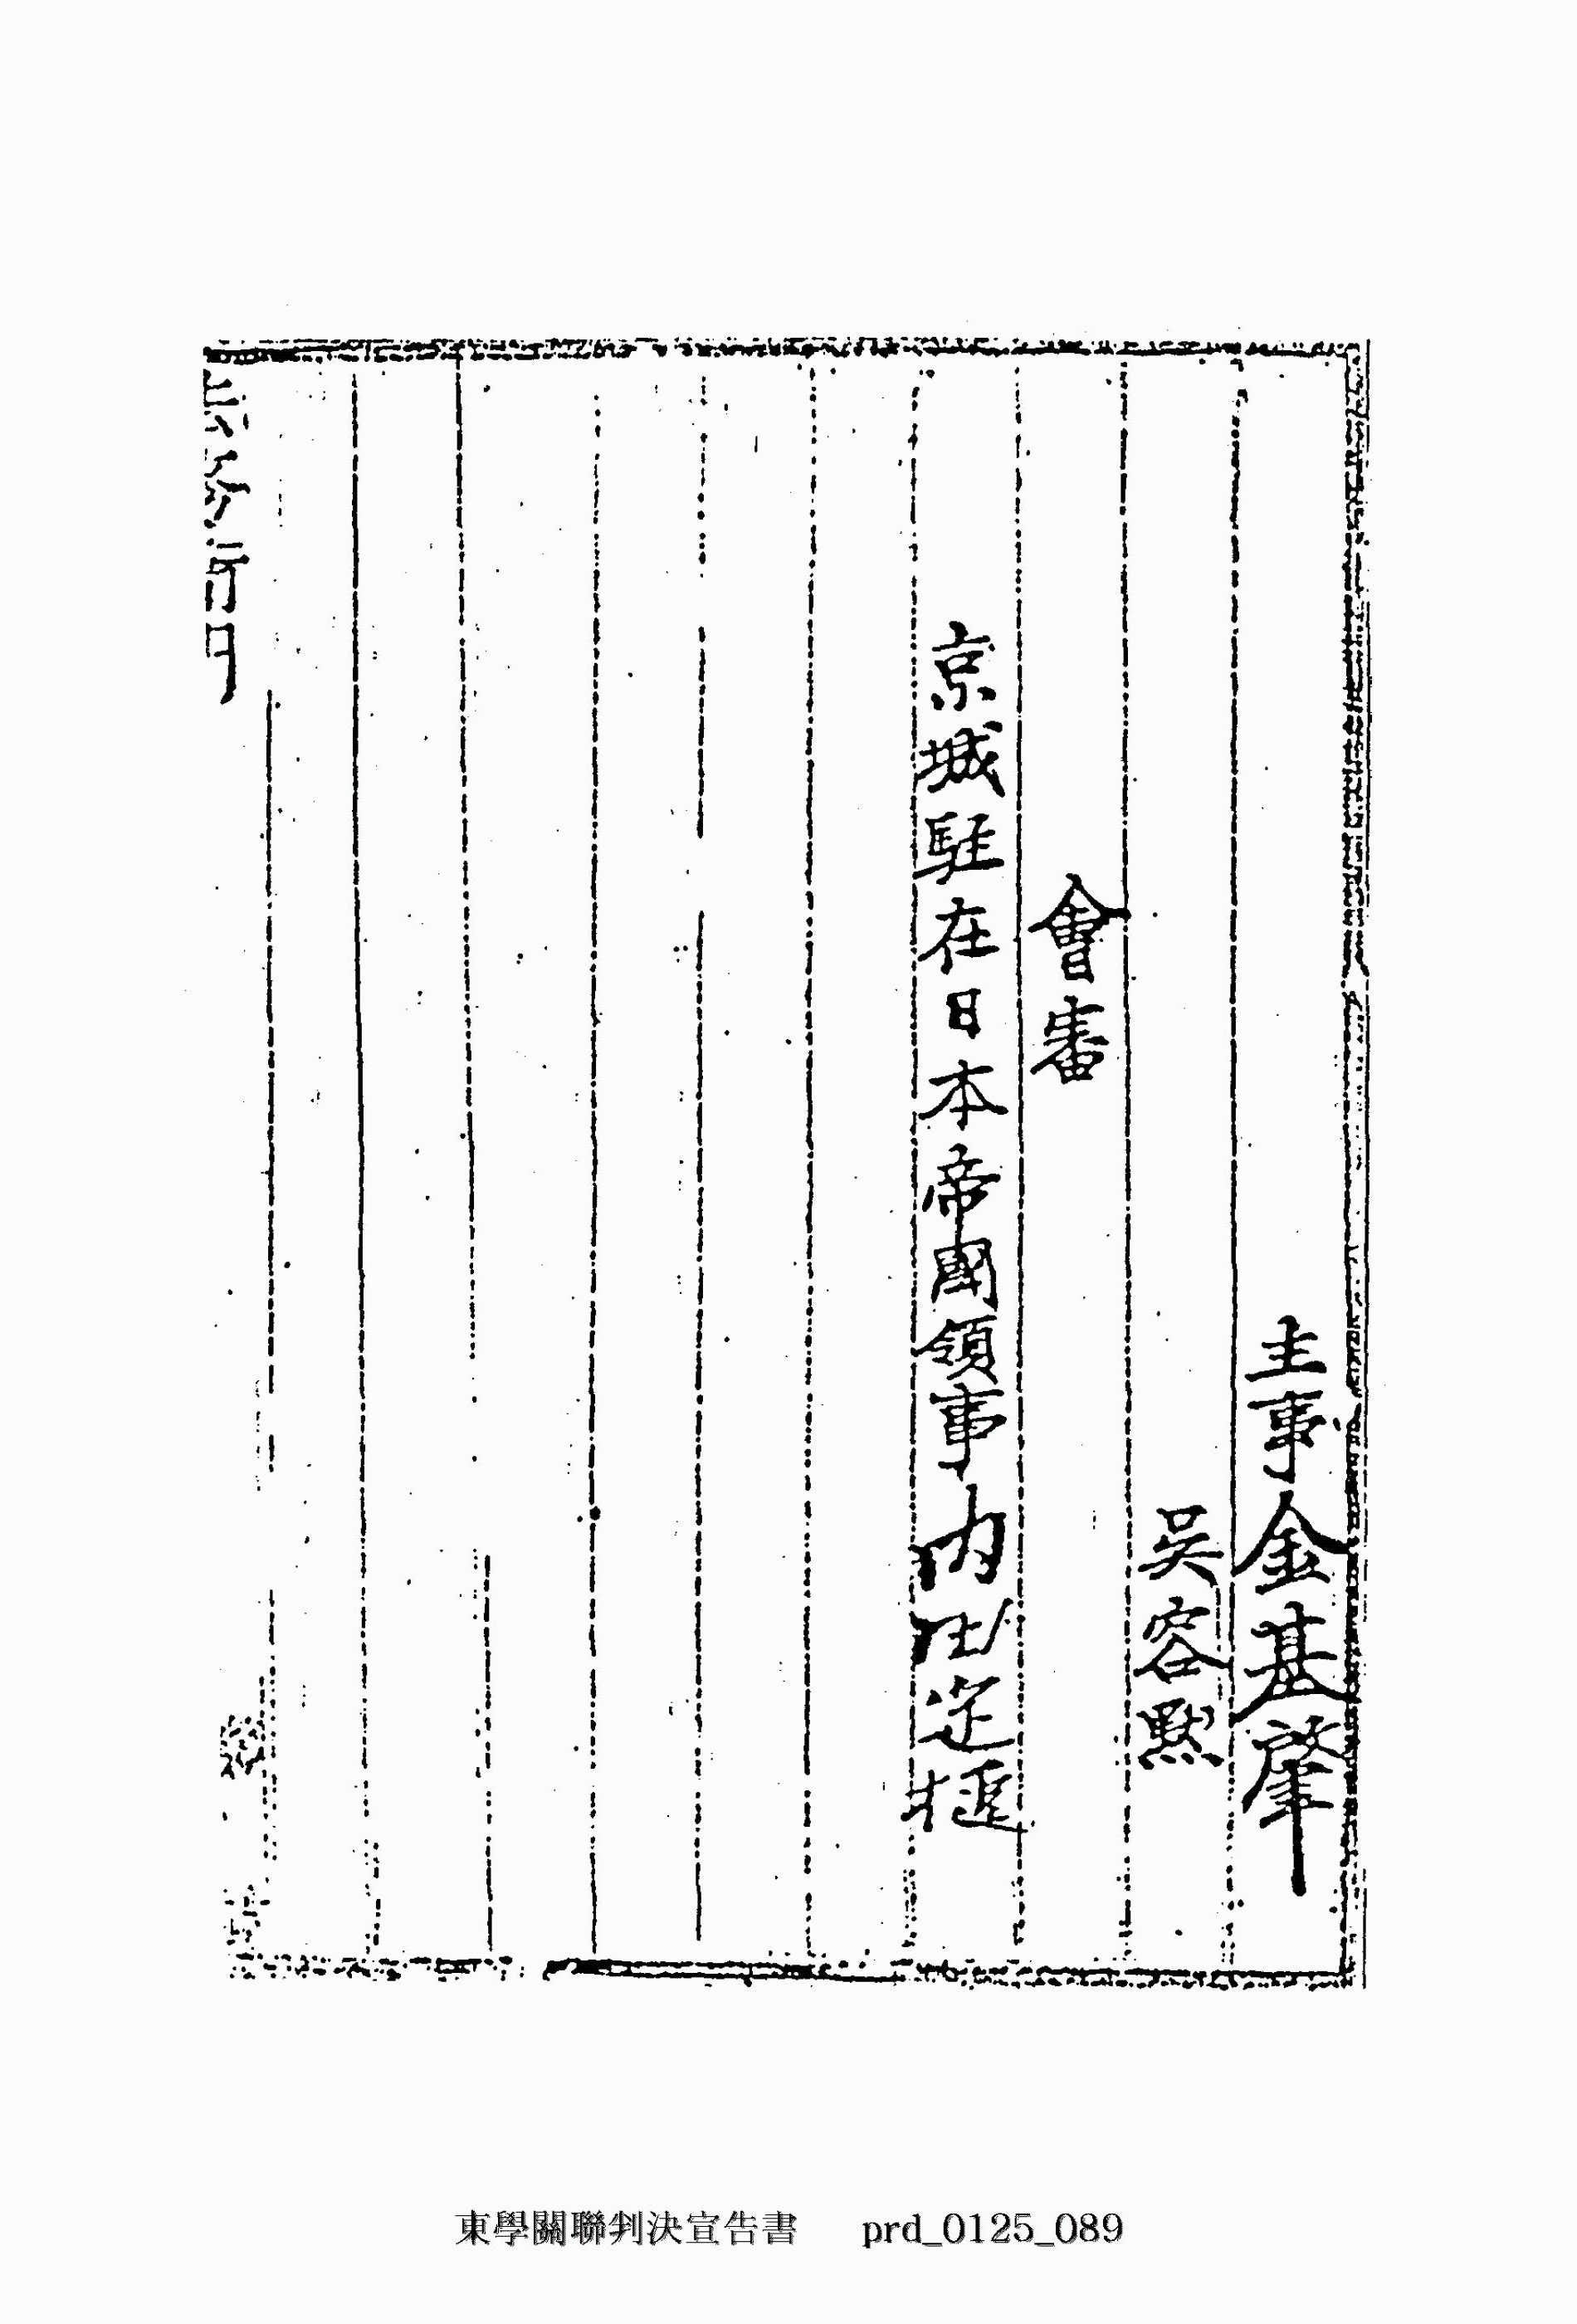 主事金基肇
吳容默
會審
京城駐在日本帝國領事内田定槌
東學關聯判決宣告書 prd_0125_089